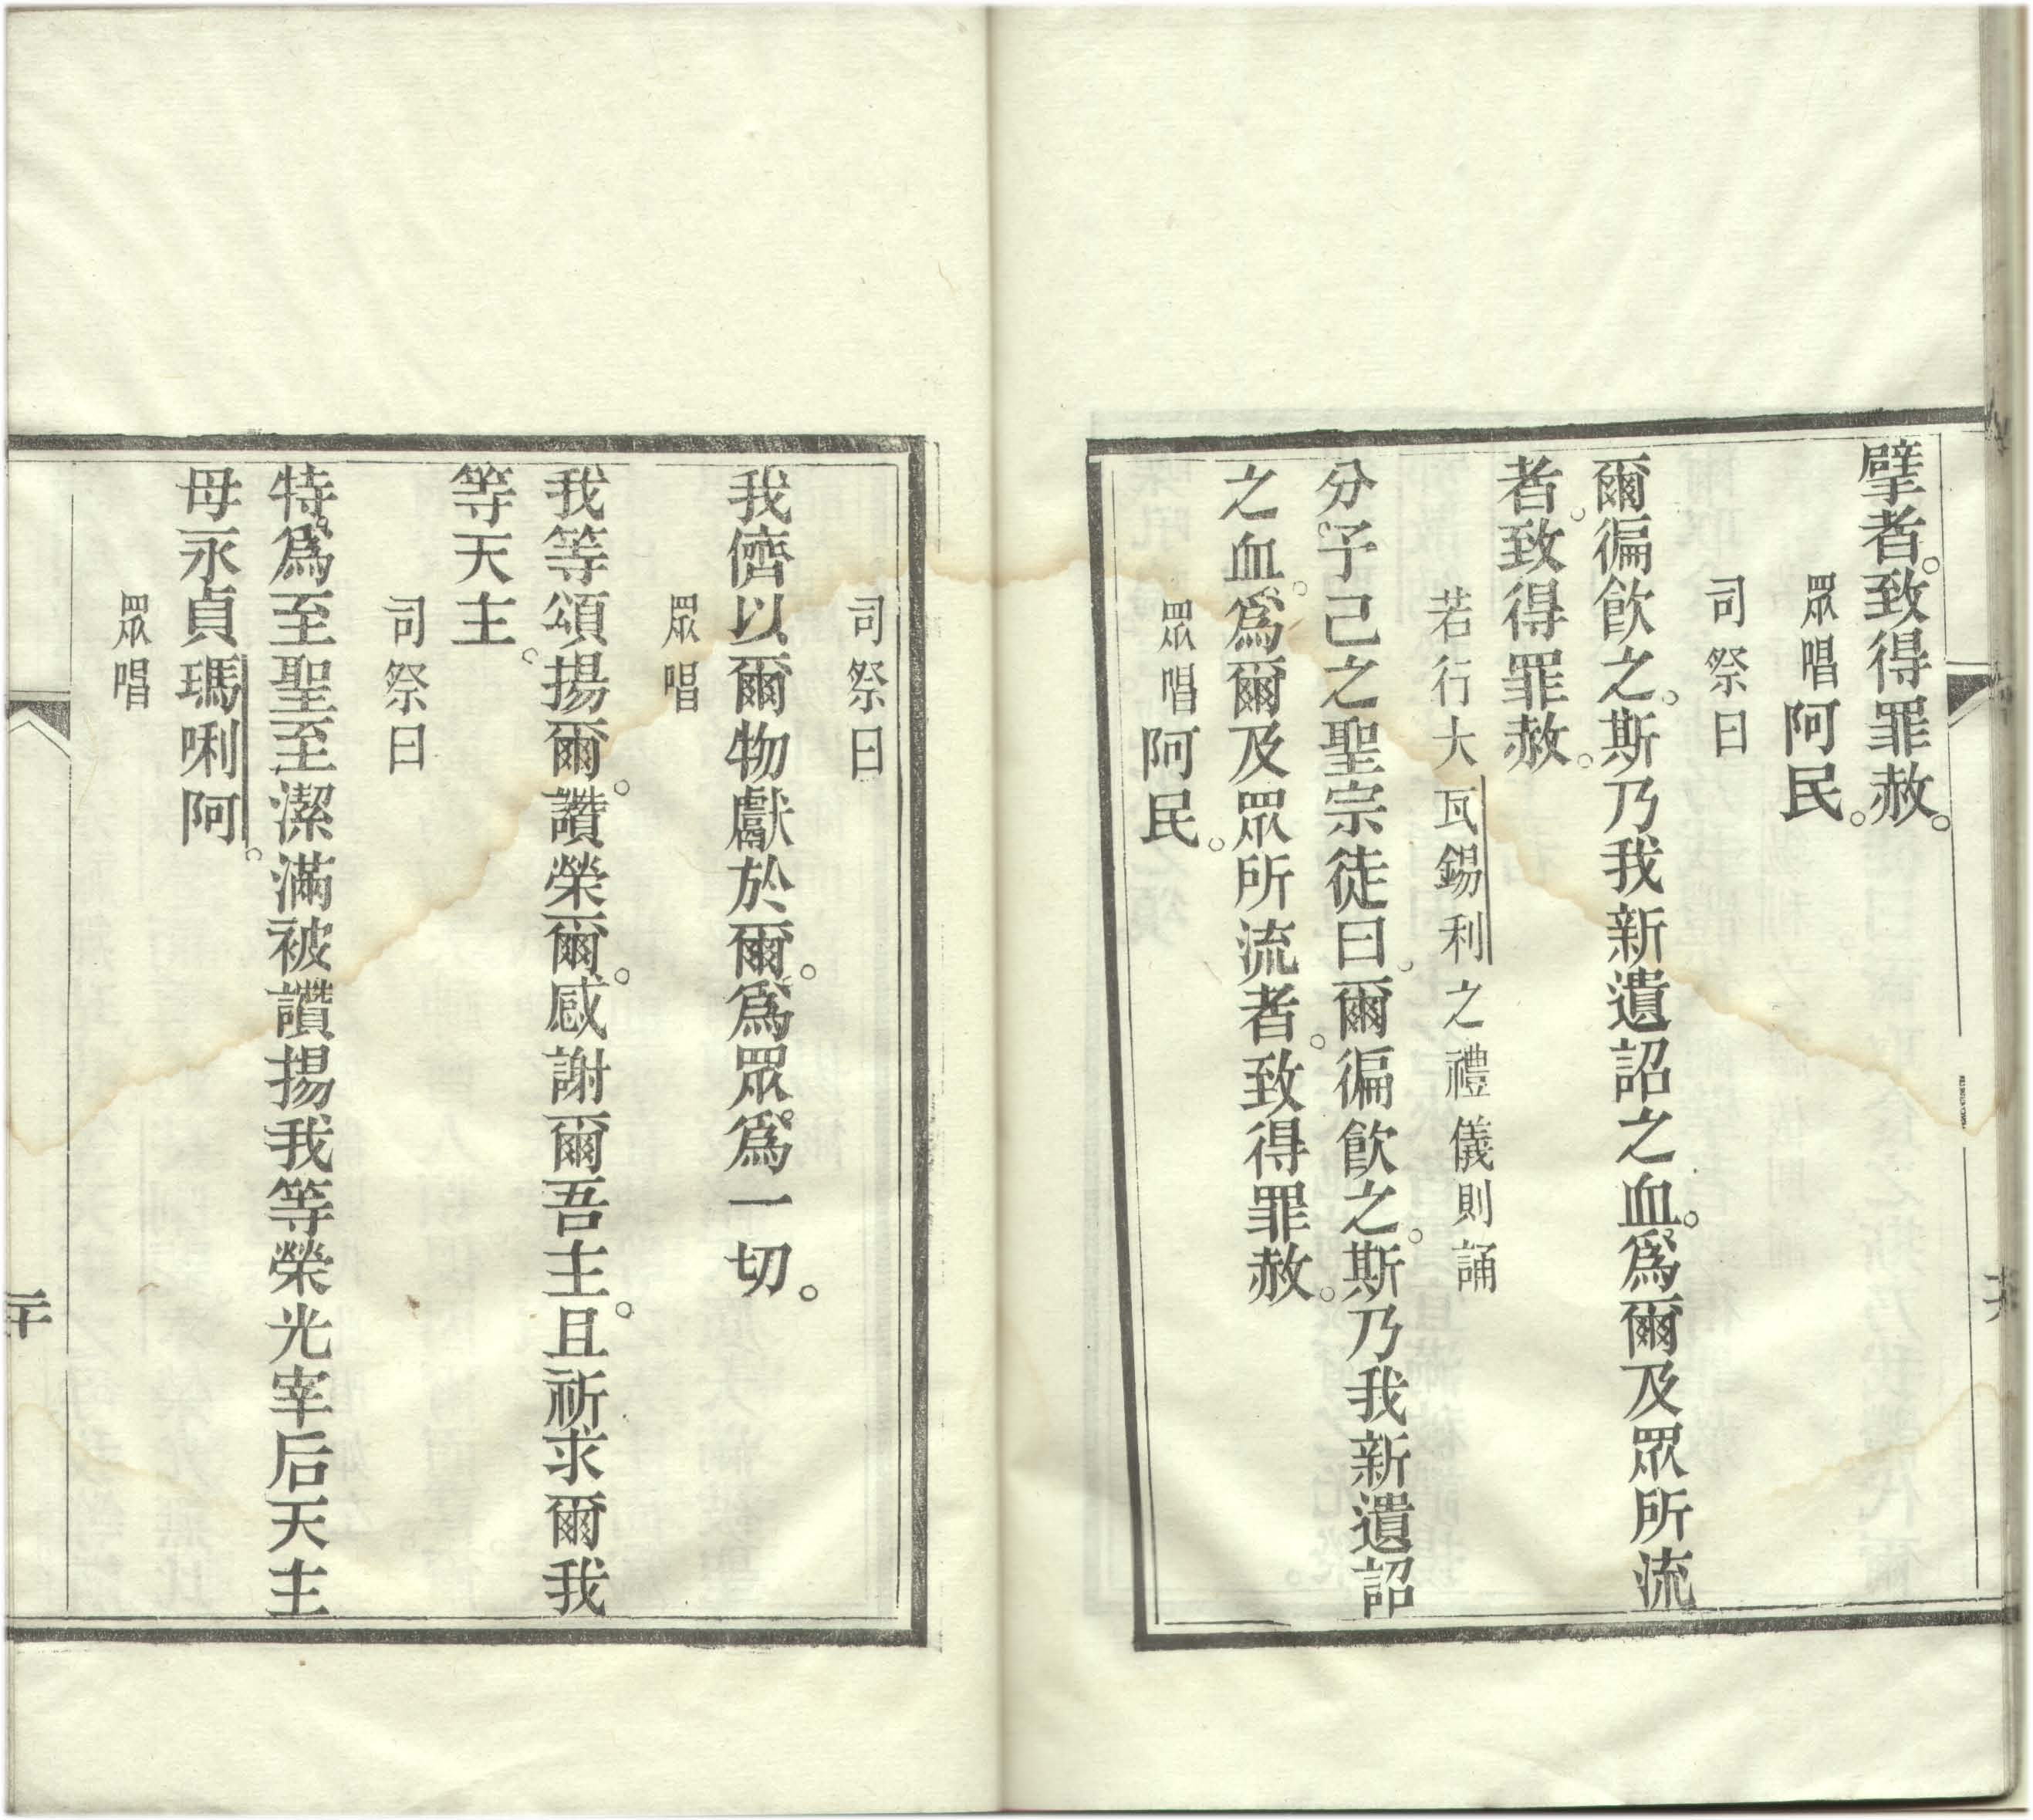 擘者。致得罪赦。
眾唱阿民。
司祭曰
爾徧飲之。斯乃我新遺詔之血。爲爾及眾所流
者。致得罪赦。
若行大瓦錫利之禮儀則誦
分。予己之聖宗徒曰。爾徧飲之。斯乃我新遺詔
之血。爲爾及眾所流者。致得罪赦。
眾唱阿民。
司祭曰
我儕以爾物獻於爾。爲眾。爲一切。
眾唱
我等頌揚爾。讚榮爾。感謝爾吾主。且祈求爾我
等天主。
司祭曰
特爲至聖至潔滿被讚揚我等榮光宰后天主
母永貞瑪唎阿。
眾唱
二十